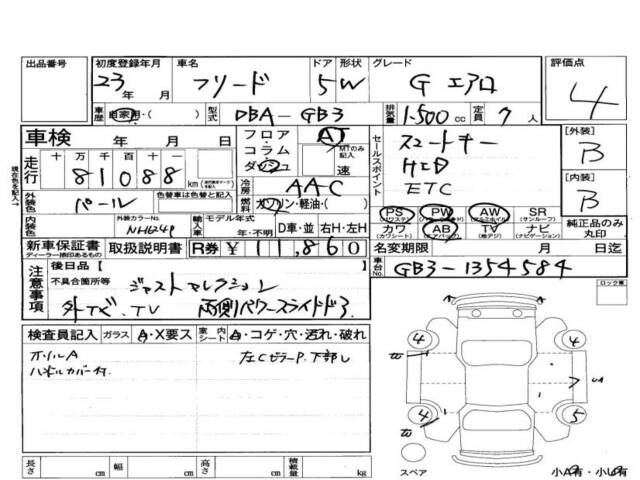 出品番号 初度登録年月 車名 ドア 形状 グレード 評価点
23 年 月 フリード 5 W G エアロ 4
車歴 自家用・( ) 型式 DBA-GB3 排気量 1.500 cc 定員 7 人
車検 年 月 日 フロア・コラム・ダッシュ AT MTのみ記入 速
セールスポイント スマートキー
HID
ETC
[外装] B
[内装] B
現在色を記入→
走行 十 万 千 百 十 一
81088 km
冷房 AAC
外装色 パール 色替車は色替と記入 燃料 ガソリン・軽油・( )
内装色 外装カラーNo. NH624P 輸入車 モデル年式 年・不明 D車・並 右H・左H
PS PW AW SR (サンルーフ)
カワ (カワシート) AB (エアバック) TV (デジ) ナビ (ナビゲーション)
純正品のみ丸印
新車保証書 ディーラー捺印あるもの 取扱説明書 R券 ¥ 11,860 名変期限 月 日迄
車台No. GB3-1354584
注意事項 後日品 [ ]
不具合箇所等 ジャストセレクション
TV 両側パワースライドドア
ロック車
検査員記入 ガラス A・X要ス 室内シート A・コゲ・穴・汚れ・破れ
ホイルA 左Cピラー 下部
ハンドルカバー付.
4 4
UA
4 5
スペア 小A有・小U有
長さ cm 幅 cm 高さ cm 積載量 kg